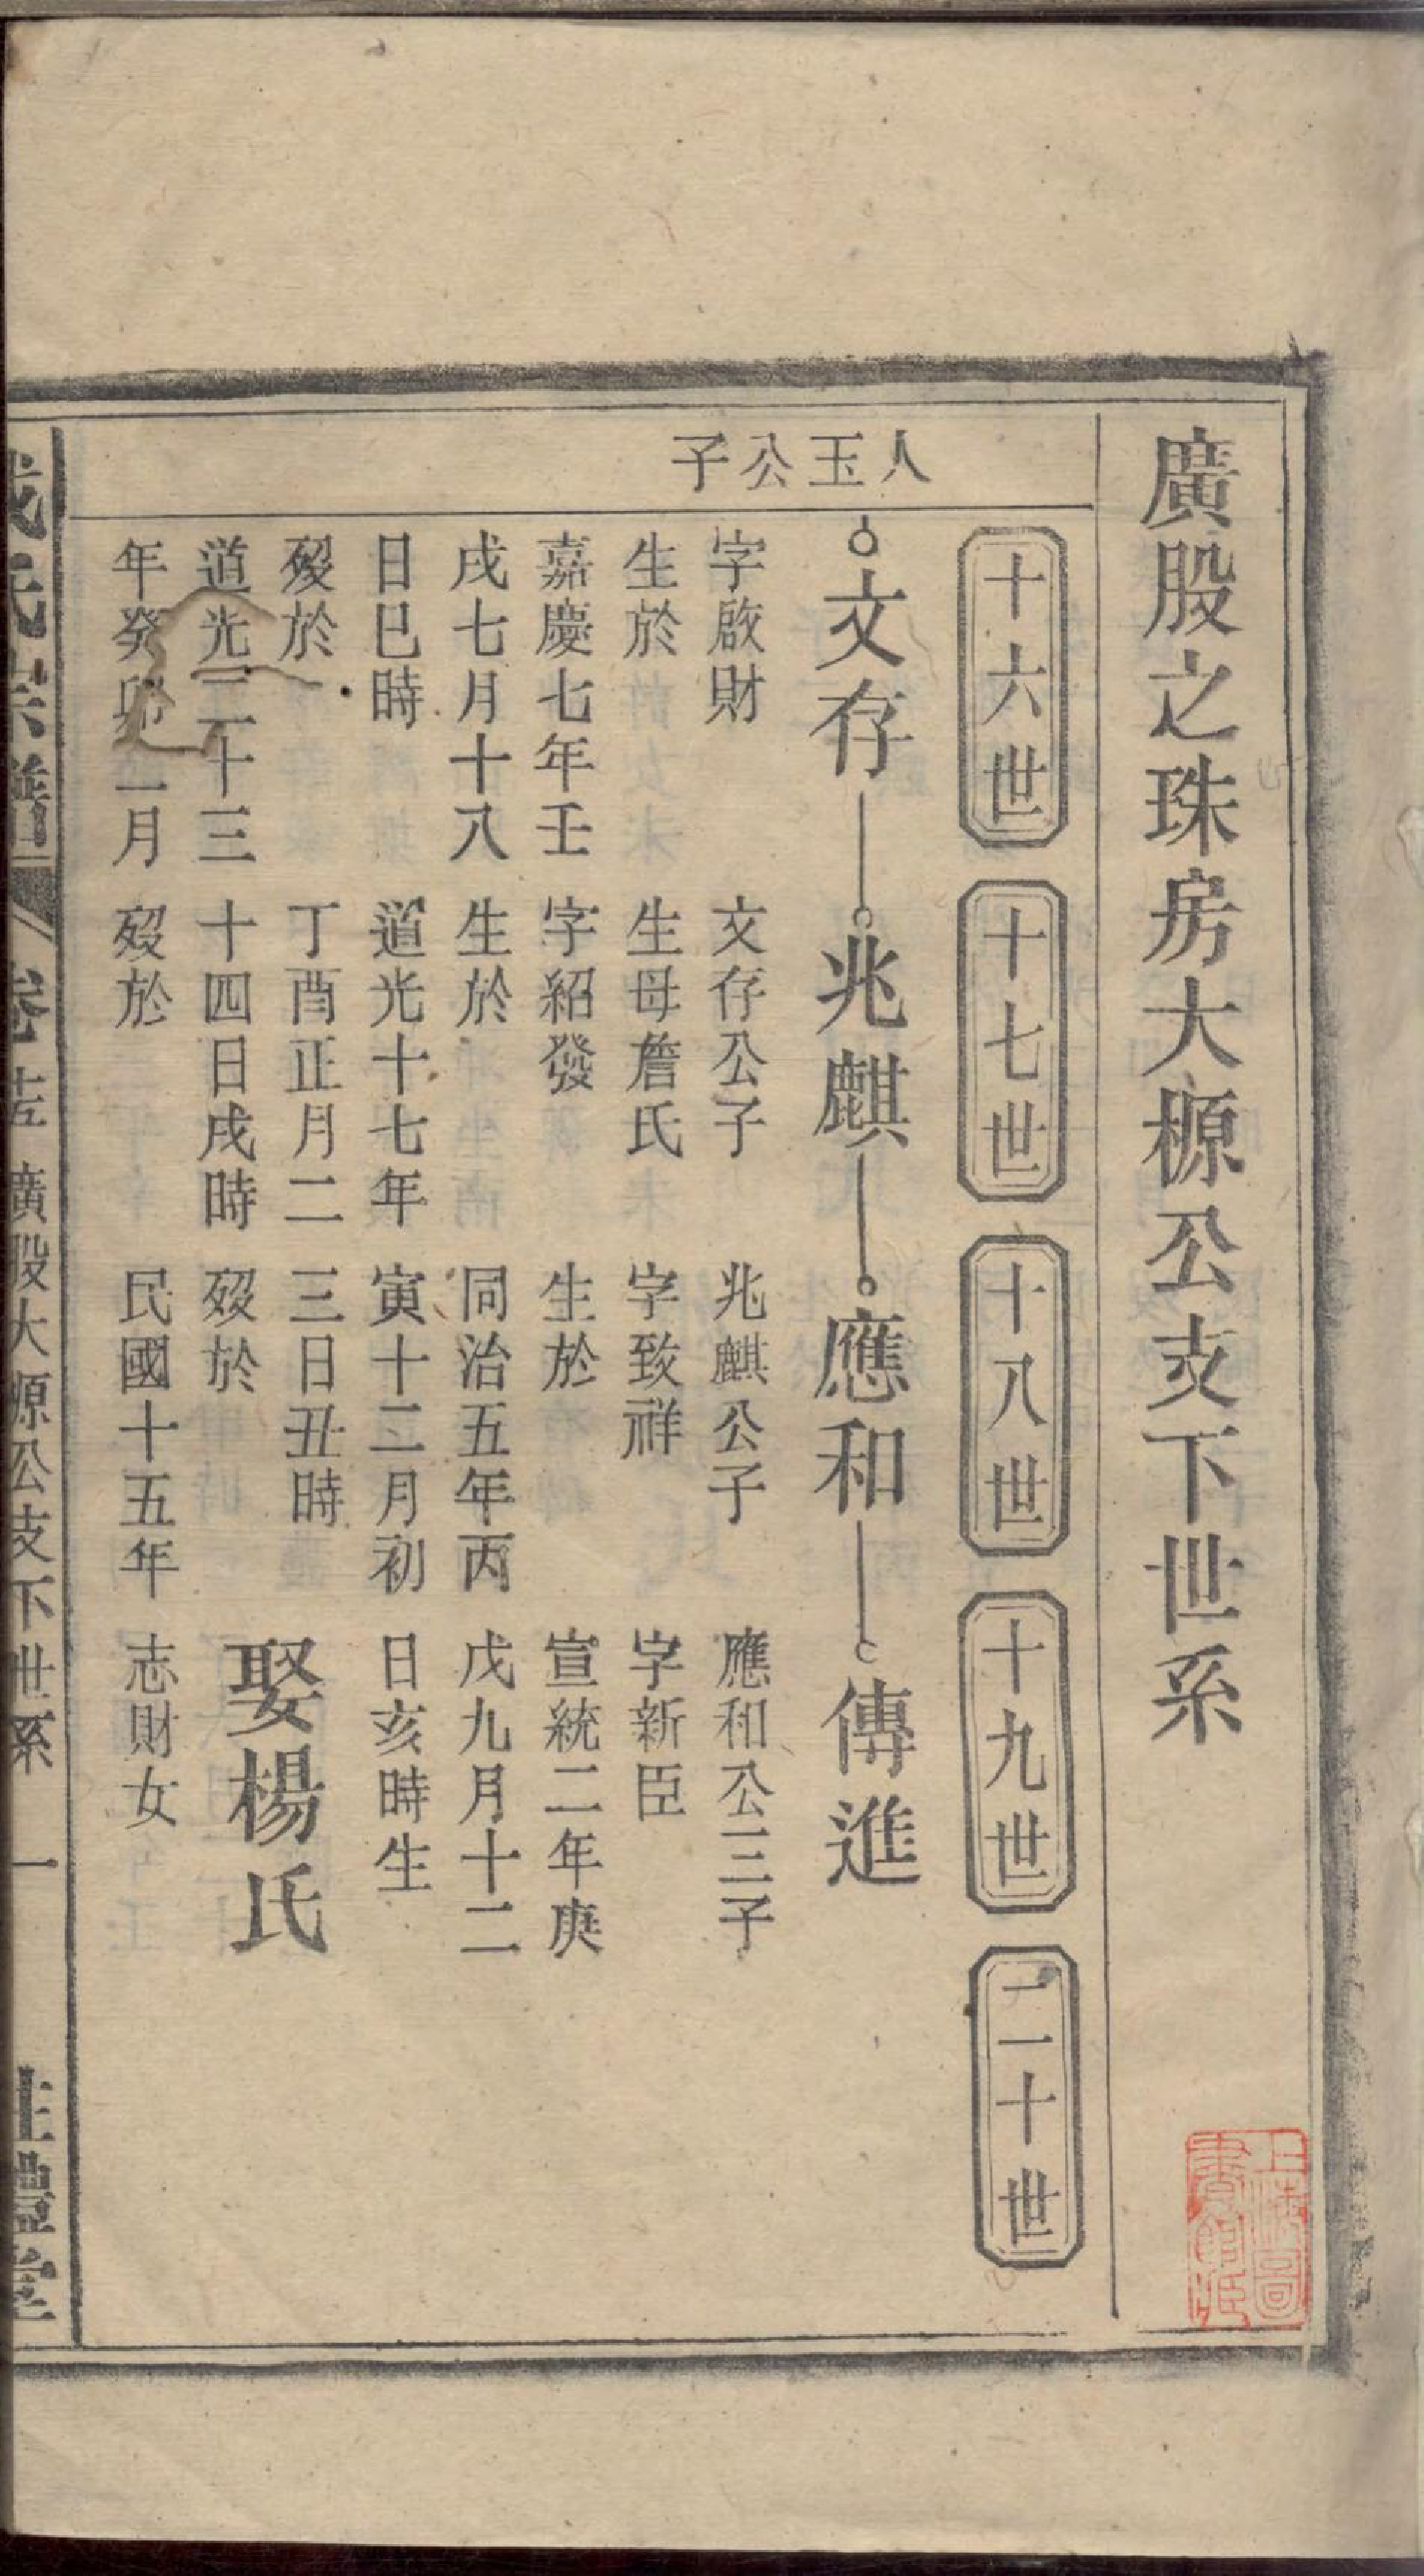 廣股之珠房大榞公支下世系
十六世
十七世
十八世
十九世
二十世
人玉公子
文存
兆麒
應和
傳進
字啟財
生於
嘉慶七年壬
戌七月十八
日巳時
歿於
道光二十三
年癸卯一月
文存公子
生母詹氏
字紹發
生於
道光十七年
丁酉正月二
十四日戌時
歿於
兆麒公子
字致祥
生於
同治五年丙
寅十二月初
三日丑時
歿於
民國十五年
應和公三子
字新臣
宣統二年庚
戌九月十二
日亥時生
娶楊氏
志財女
氏宗譜
卷
廣股大源公支下世系
一
禮堂
上海圖書館藏